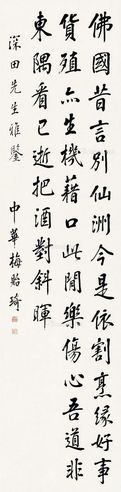 佛國昔言別仙洲今是依割烹緣好事
貨殖亦生機藉口此閒樂傷心吾道非
東隅看已逝把酒對斜暉
深田先生雅鑒
中華梅貽琦